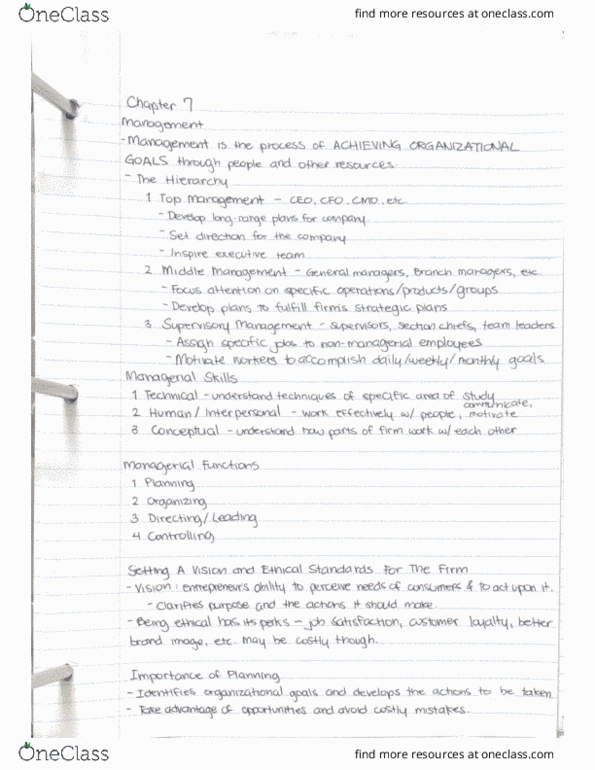 OneClass
find more resources at oneclass.com
Chapter 7
Management
-Management is the process of ACHIEVING ORGANIZATIONAL
GOALS through people and other resources.
- The Hierarchy
1 Top Management - CEO, CFO, CMO, etc.
- Develop long-range plans for company.
- Set direction for the company
- Inspire executive team
2 Middle Management - General managers, Branch managers, etc.
- Focus attention on specific operations/products/groups
- Develop plans to fulfill firm's strategic plans
3 Supervisory Management - supervisors, section chiefs, team leaders
- Assign specific jobs to non-managerial employees
- Motivate workers to accomplish daily/weekly/monthly goals
Managerial Skills
1 Technical - understand techniques of specific area of study
2 Human / Interpersonal - work effectively w/ people, communicate, motivate
3 Conceptual - understand how parts of firm work w/ each other
Managerial Functions
1 Planning
2 Organizing
3 Directing/Leading
4 Controlling
Setting A Vision and Ethical Standards for The Firm
- Vision : entrepreneur's ability to perceive needs of consumers & to act upon it.
- Clarifies purpose and the actions it should make.
- Being ethical has its perks - job satisfaction, customer loyalty, better
brand image, etc. may be costly though.
Importance of Planning
- Identifies organizational goals and develops the actions to be taken
- Take advantage of opportunities and avoid costly mistakes.
OneClass
find more resources at oneclass.com